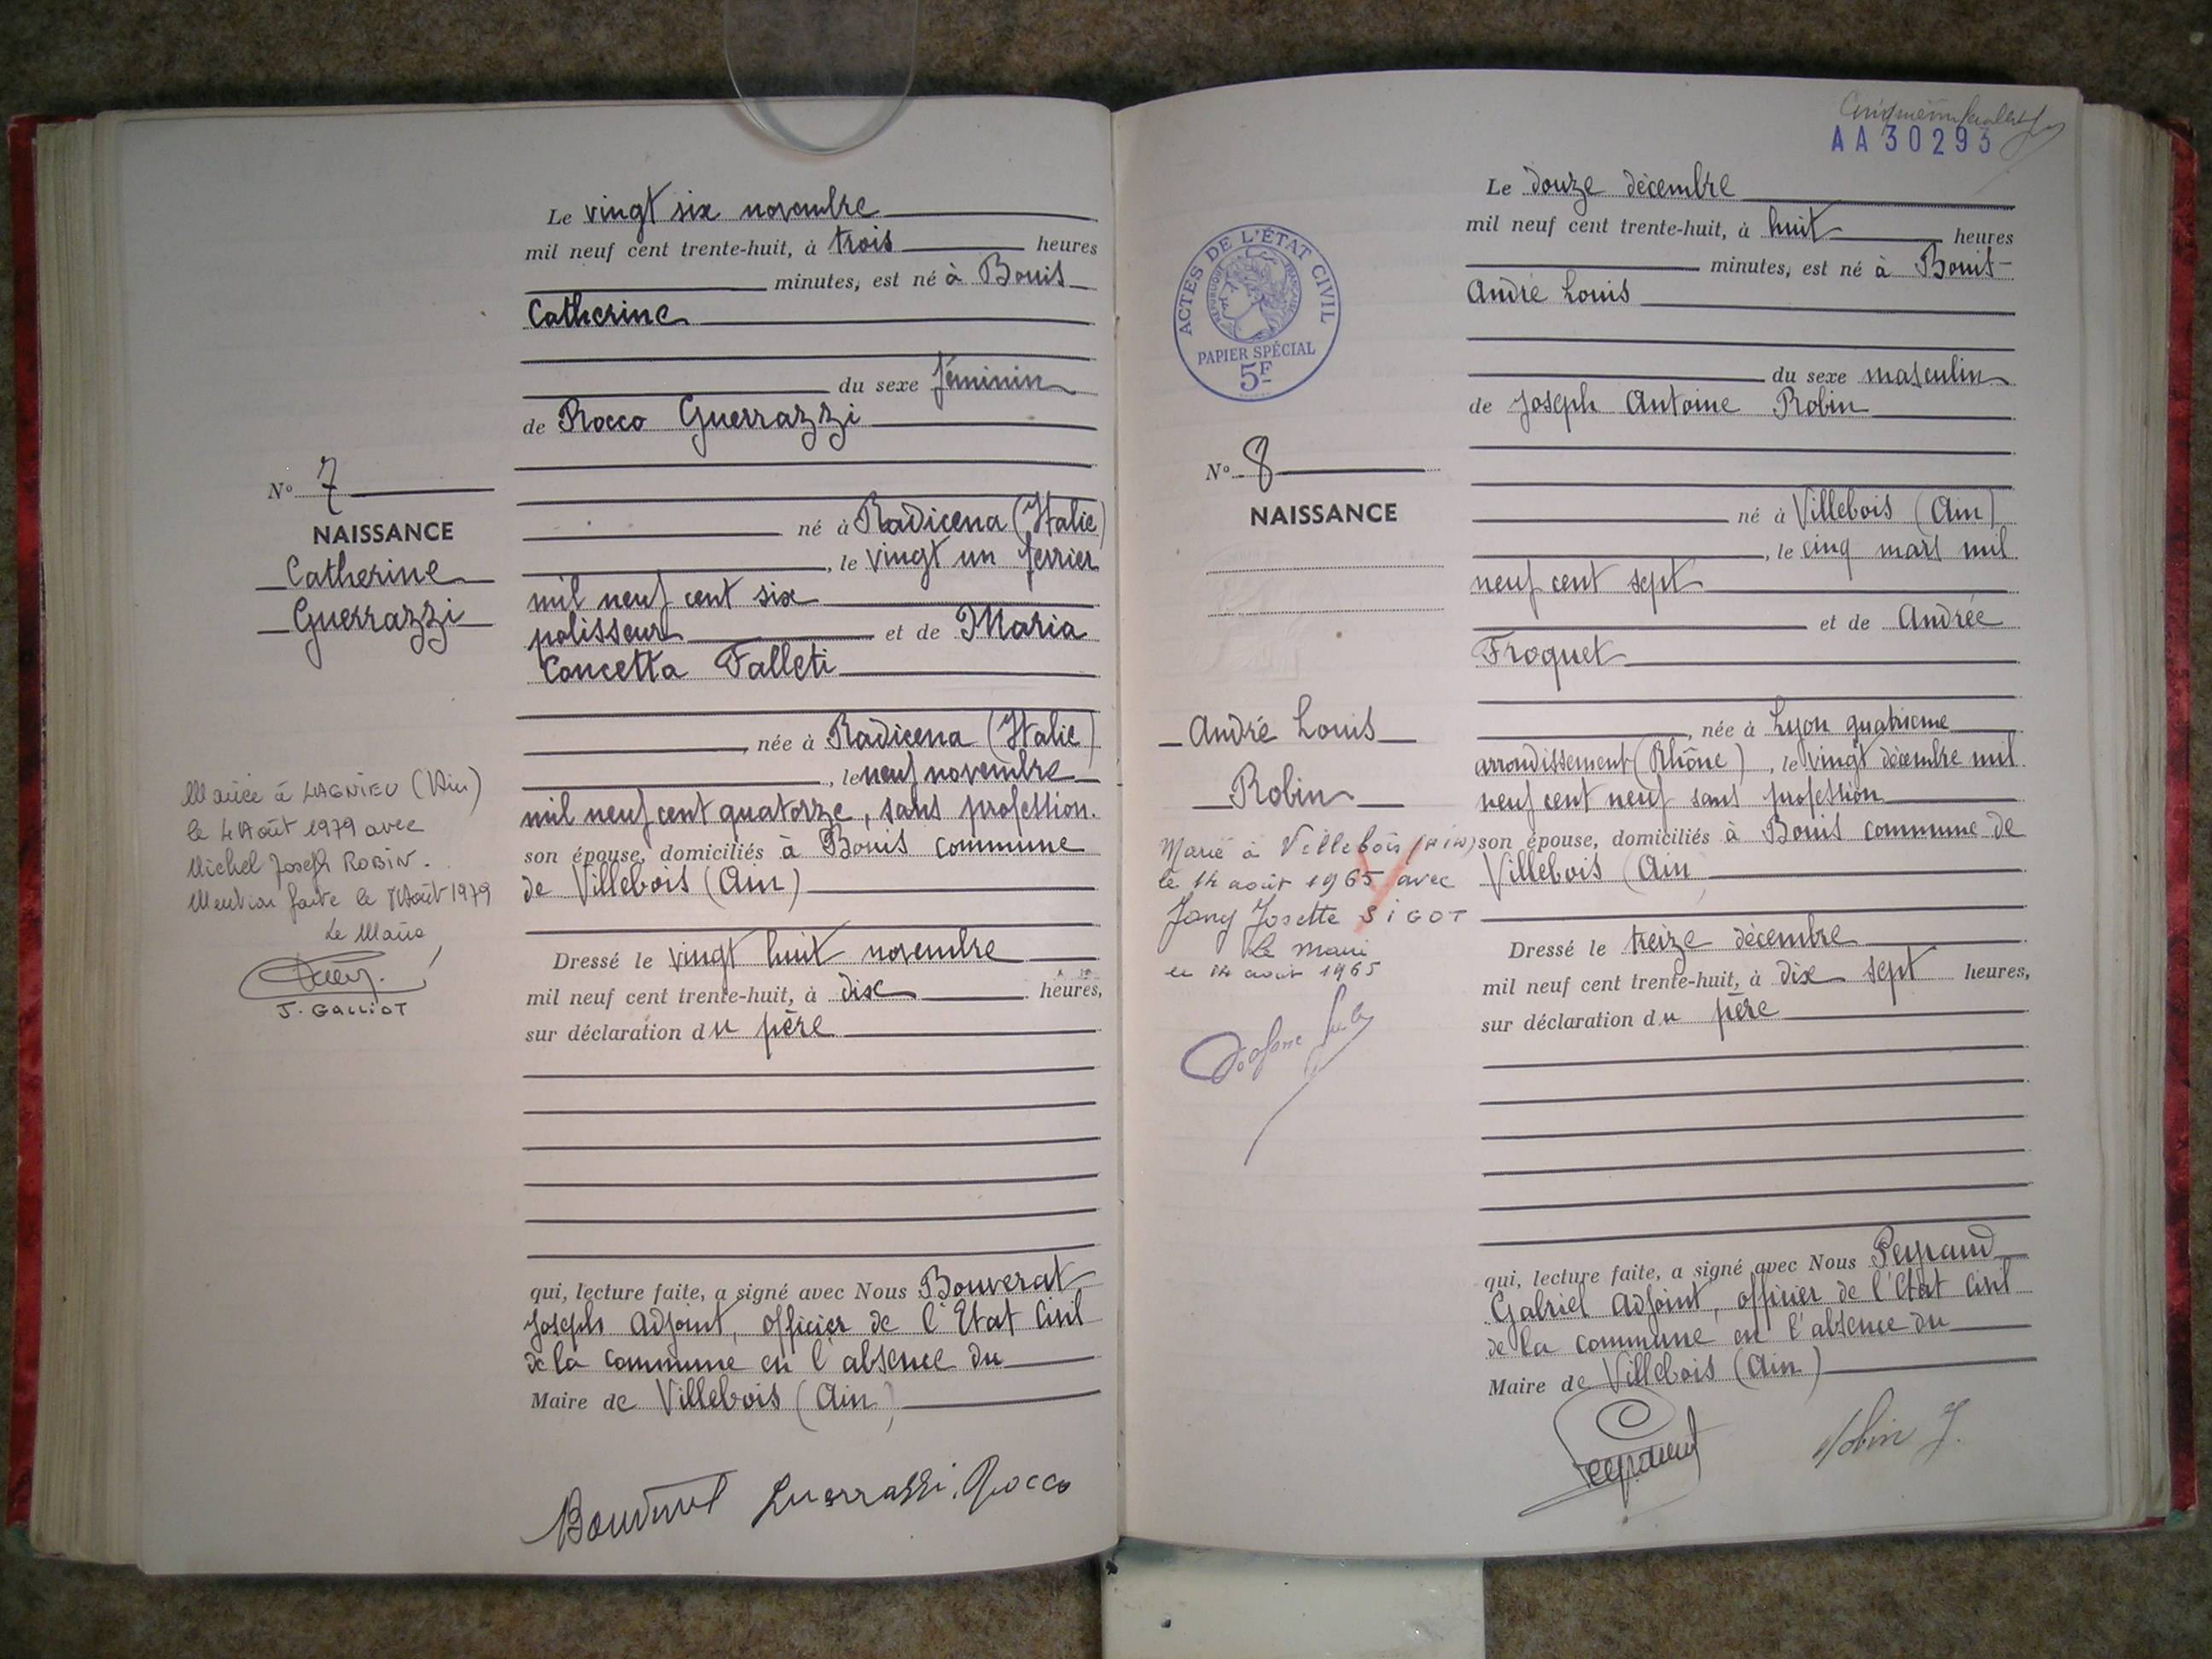 Le vingt six novembre
mil neuf cent trente-huit, à trois heures
minutes, est né à Bouis
Catherine
du sexe féminin
de Rocco Guerrazzi
né à Radicena (Italie)
, le vingt un fevrier
mil neuf cent six
polisseur et de Maria
Concetta Falleti
, née à Radicena (Italie)
, le neuf novembre
mil neuf cent quatorze, sans profession.
son épouse, domiciliés à Bouis commune
de Villebois (Ain)
Dressé le vingt huit novembre
mil neuf cent trente-huit, à dix heures,
sur déclaration du père
qui, lecture faite, a signé avec Nous Bouverat
Joseph Adjoint, officier de l'Etat Civil
de la commune en l'absence du
Maire de Villebois (Ain)
Bouverat Guerrazzi Rocco
N° 7
NAISSANCE
Catherine
Guerrazzi
Mariée à LAGNIEU (Ain)
le 4 Août 1979 avec
Michel Joseph ROBIN.
Mention faite le Août 1979
Le Maire
J. GALLIOT
AA30293
Le douze décembre
mil neuf cent trente-huit, à huit heures
minutes, est né à Bouis
André Louis
du sexe masculin
de Joseph Antoine Robin
né à Villebois (Ain)
, le cinq mars mil
neuf cent sept
et de Andrée
Froquet
, née à Lyon quatrieme
arrondissement (Rhône) , le vingt décembre mil
neuf cent neuf sans profession
son épouse, domiciliés à Bouis commune de
Villebois (Ain
Dressé le treize décembre
mil neuf cent trente-huit, à dix sept heures,
sur déclaration du père
qui, lecture faite, a signé avec Nous Peyraud
Gabriel Adjoint, officier de l'Etat Civil
de la commune en l'absence du
Maire de Villebois (Ain)
Peyraud Robin J.
ACTES DE L'ÉTAT CIVIL
RÉPUBLIQUE FRANÇAISE
PAPIER SPÉCIAL
5F
N° 8
NAISSANCE
André Louis
Robin
Marié à Villebois (AIN)
le 14 août 1965 avec
Jany Josette SIGOT
Le Maire
le 14 août 1965